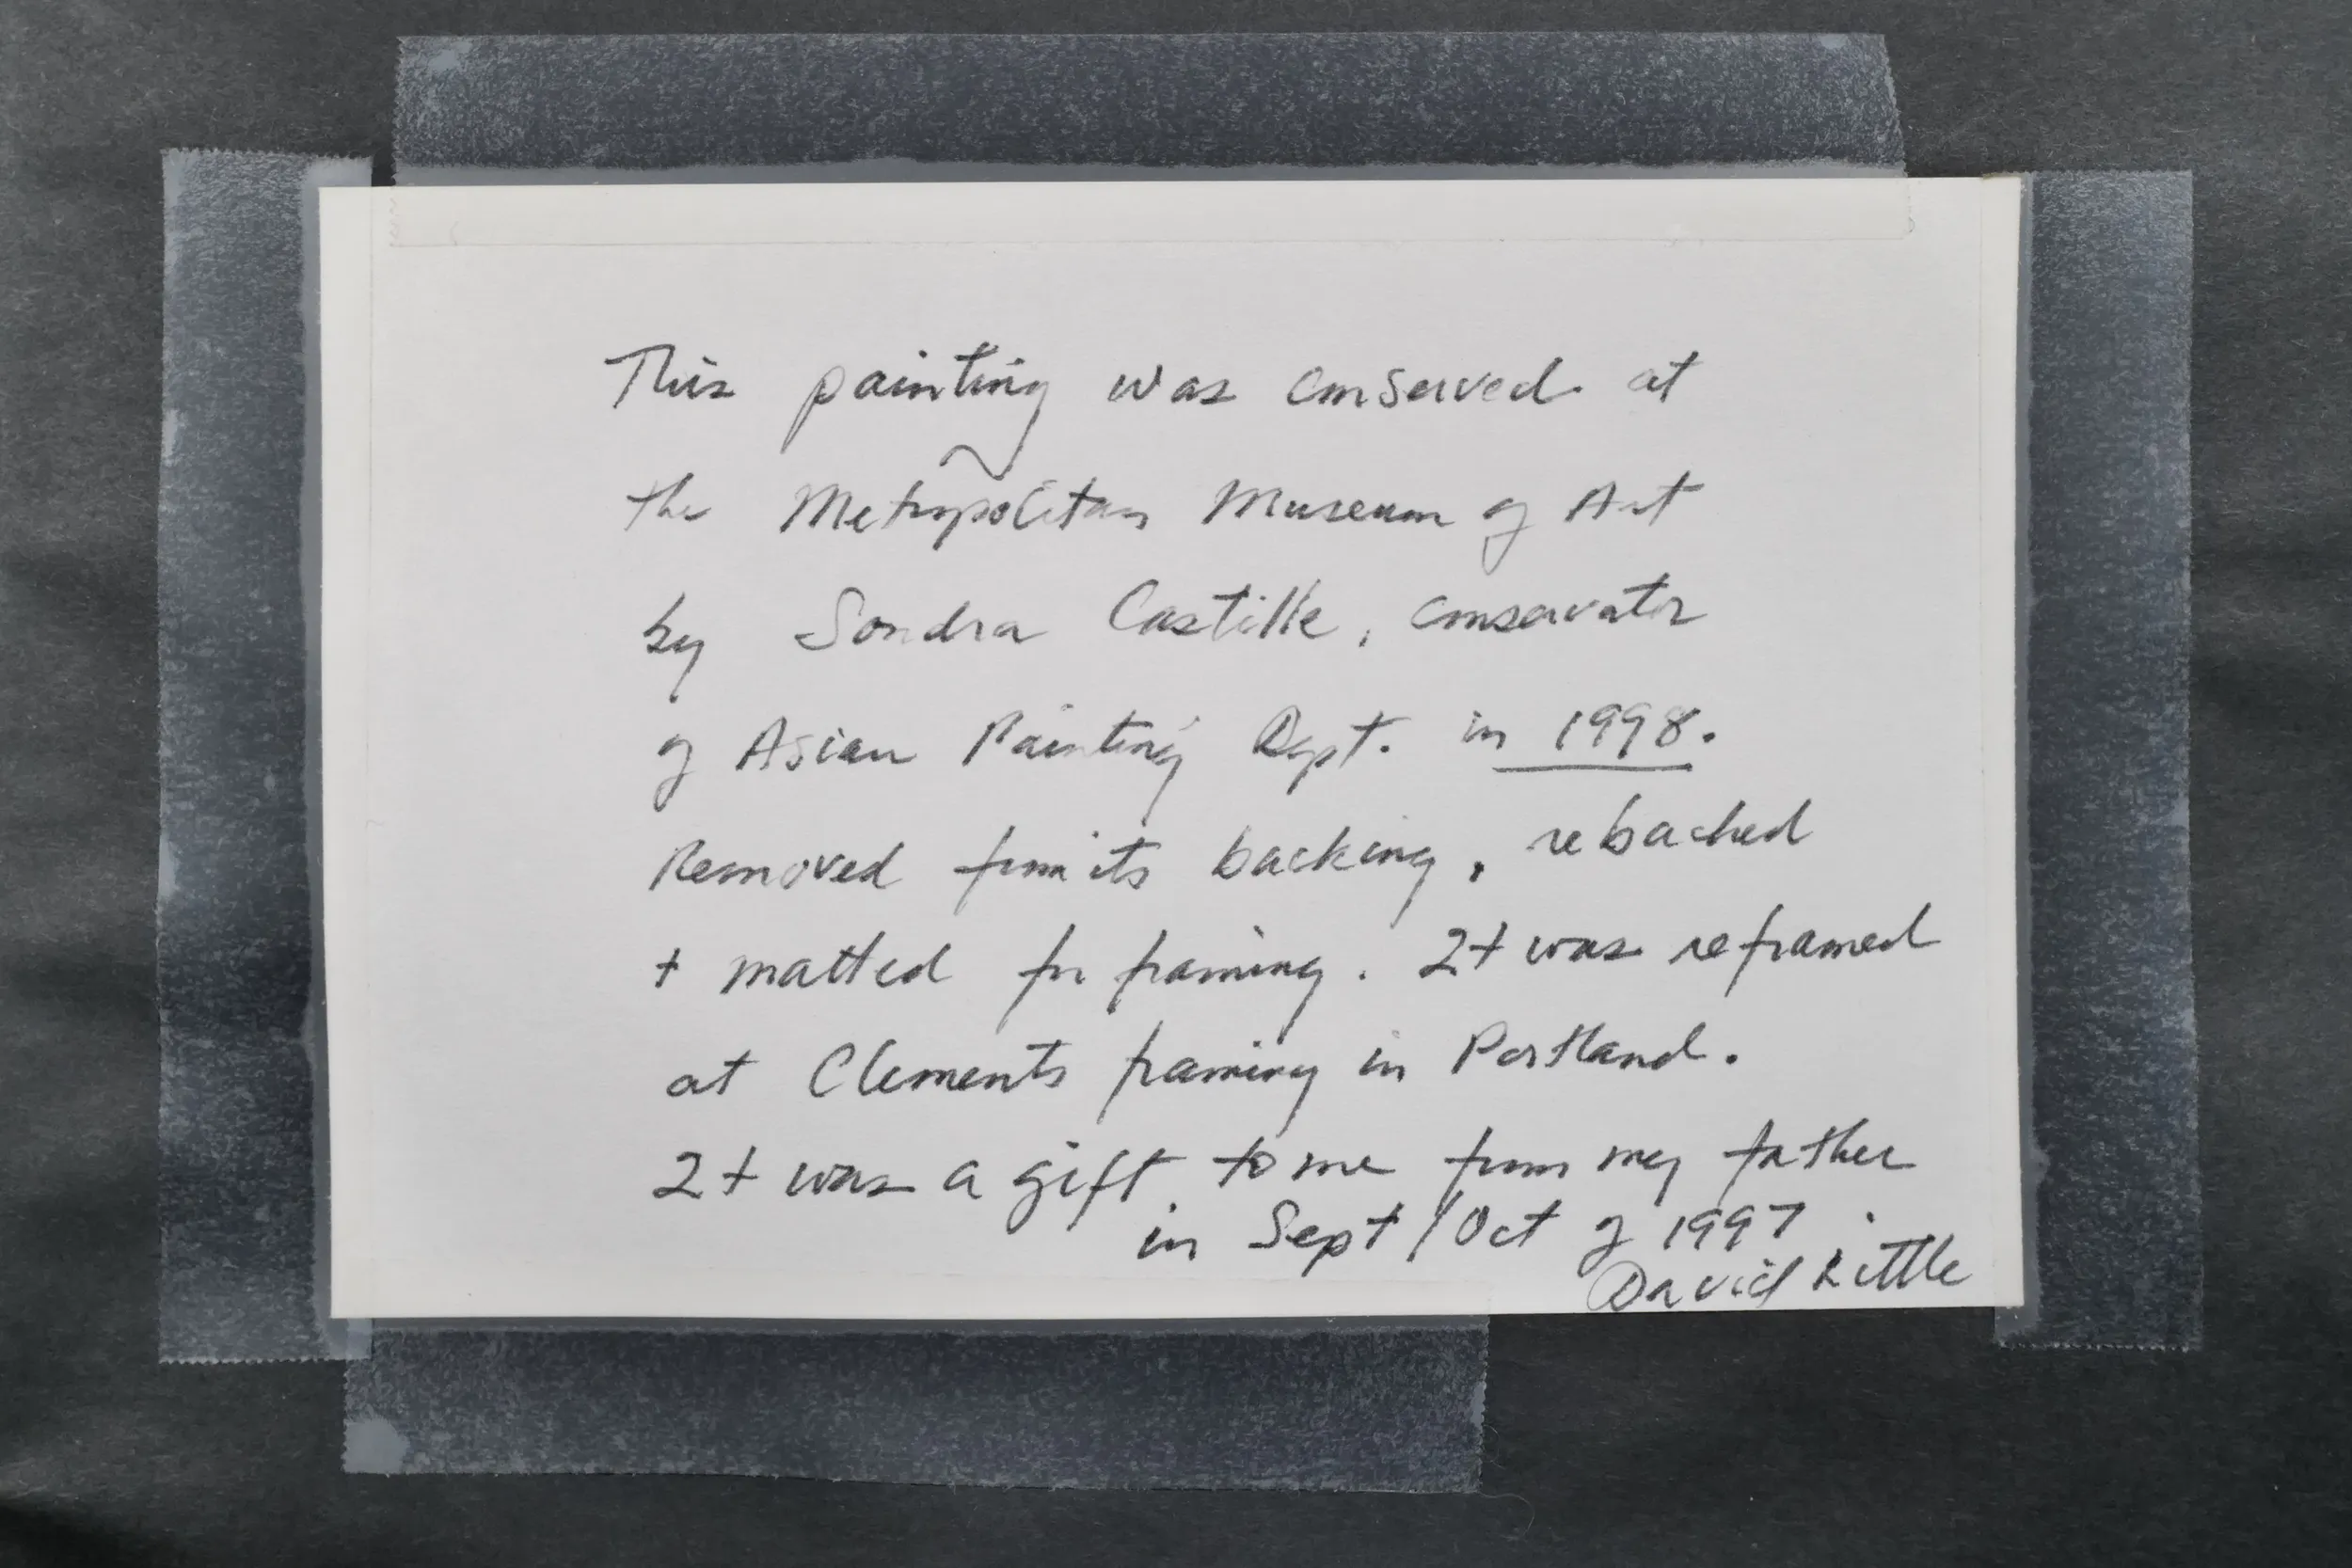 This painting was conserved at
the Metropolitan Museum of Art
by Sondra Castille, conservator
of Asian Painting Dept. in 1998.
Removed from its backing, rebacked
+ matted for framing. It was reframed
at Clements framing in Portland.
It was a gift to me from my father
in Sept/Oct of 1997.
David Kittle